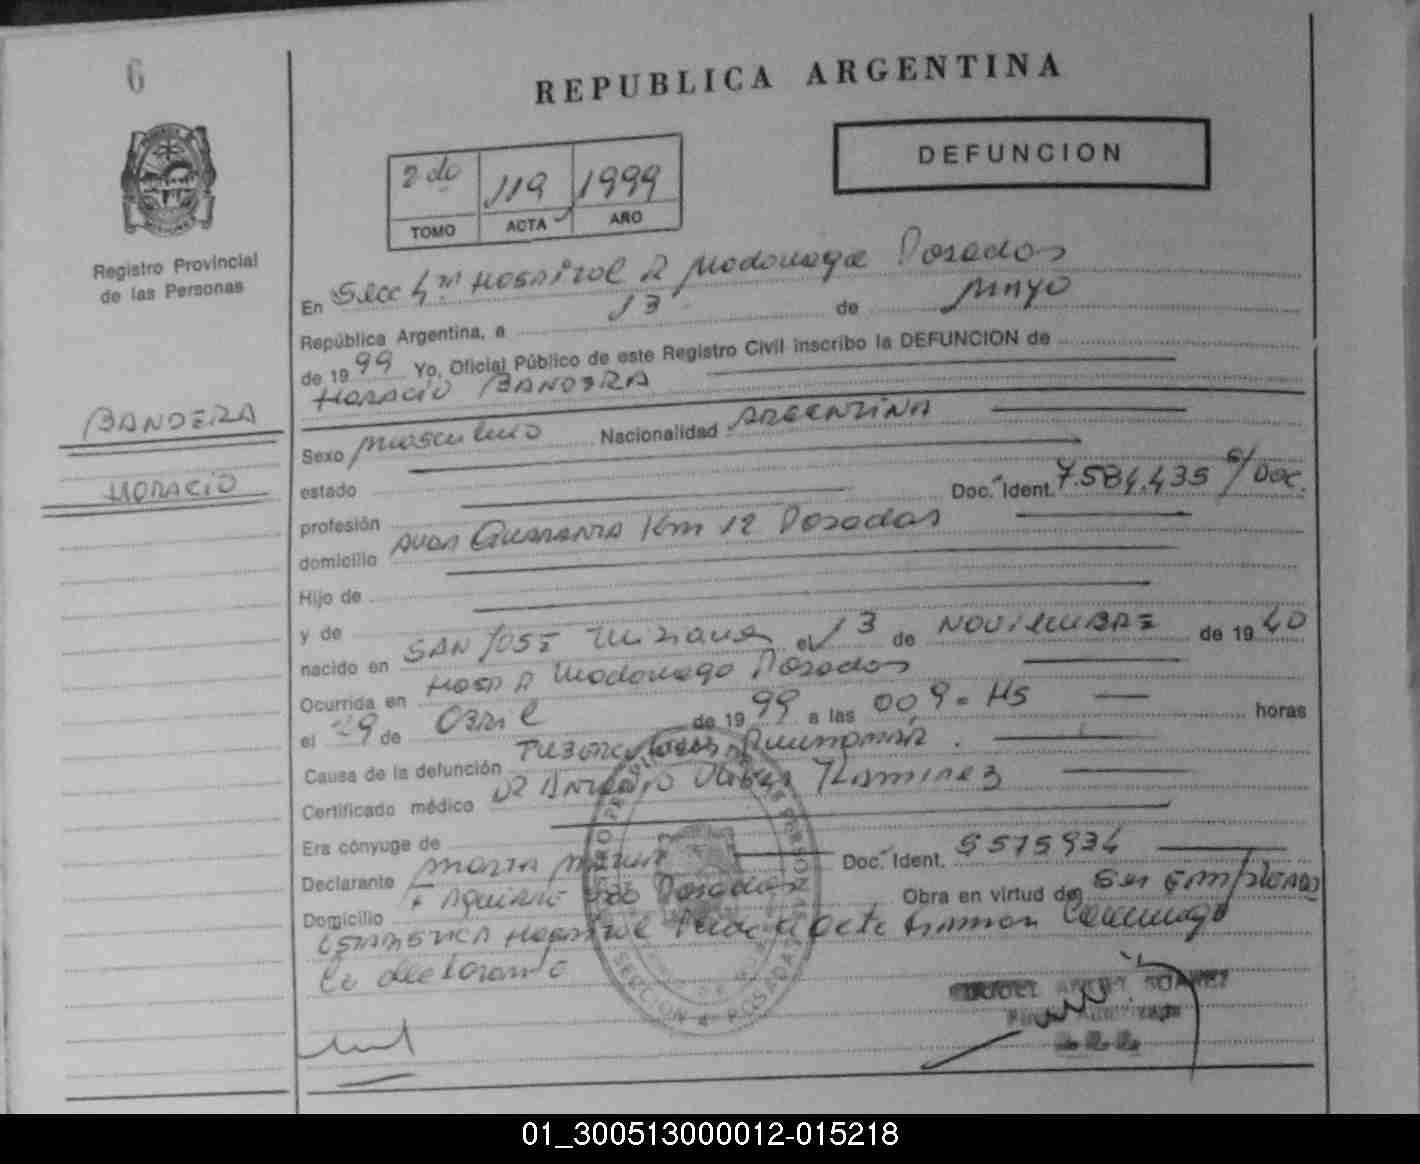 6
REPUBLICA ARGENTINA
DEFUNCION
2do 119 1999
TOMO ACTA AÑO
Registro Provincial
de las Personas
En Secc 4ta Hospital R Madariaga Posadas
República Argentina, a 13 de Mayo
de 1999 Yo, Oficial Público de este Registro Civil inscribo la DEFUNCION de
HORACIO BANDERA
BANDERA
HORACIO
Sexo masculino Nacionalidad ARGENTINA
estado
profesión Doc. Ident. 7.584.435 s/Doc.
domicilio Avda Quaranta Km 12 Posadas
Hijo de
y de
nacido en SAN JOSE Misiones el 13 de NOVIEMBRE de 1940
Ocurrida en Hosp R Madariaga Posadas
el 29 de Abril de 1999 a las 009 - Hs horas
Causa de la defunción Tuberculosis Pulmonar.
Certificado médico Dr Antonio Ramirez
Era cónyuge de
Declarante Doc. Ident. 5575934
Domicilio F Aguirre Posadas Obra en virtud de ser empleado
Hospital
la declarante
SECCION 4 POSADAS
01_300513000012-015218